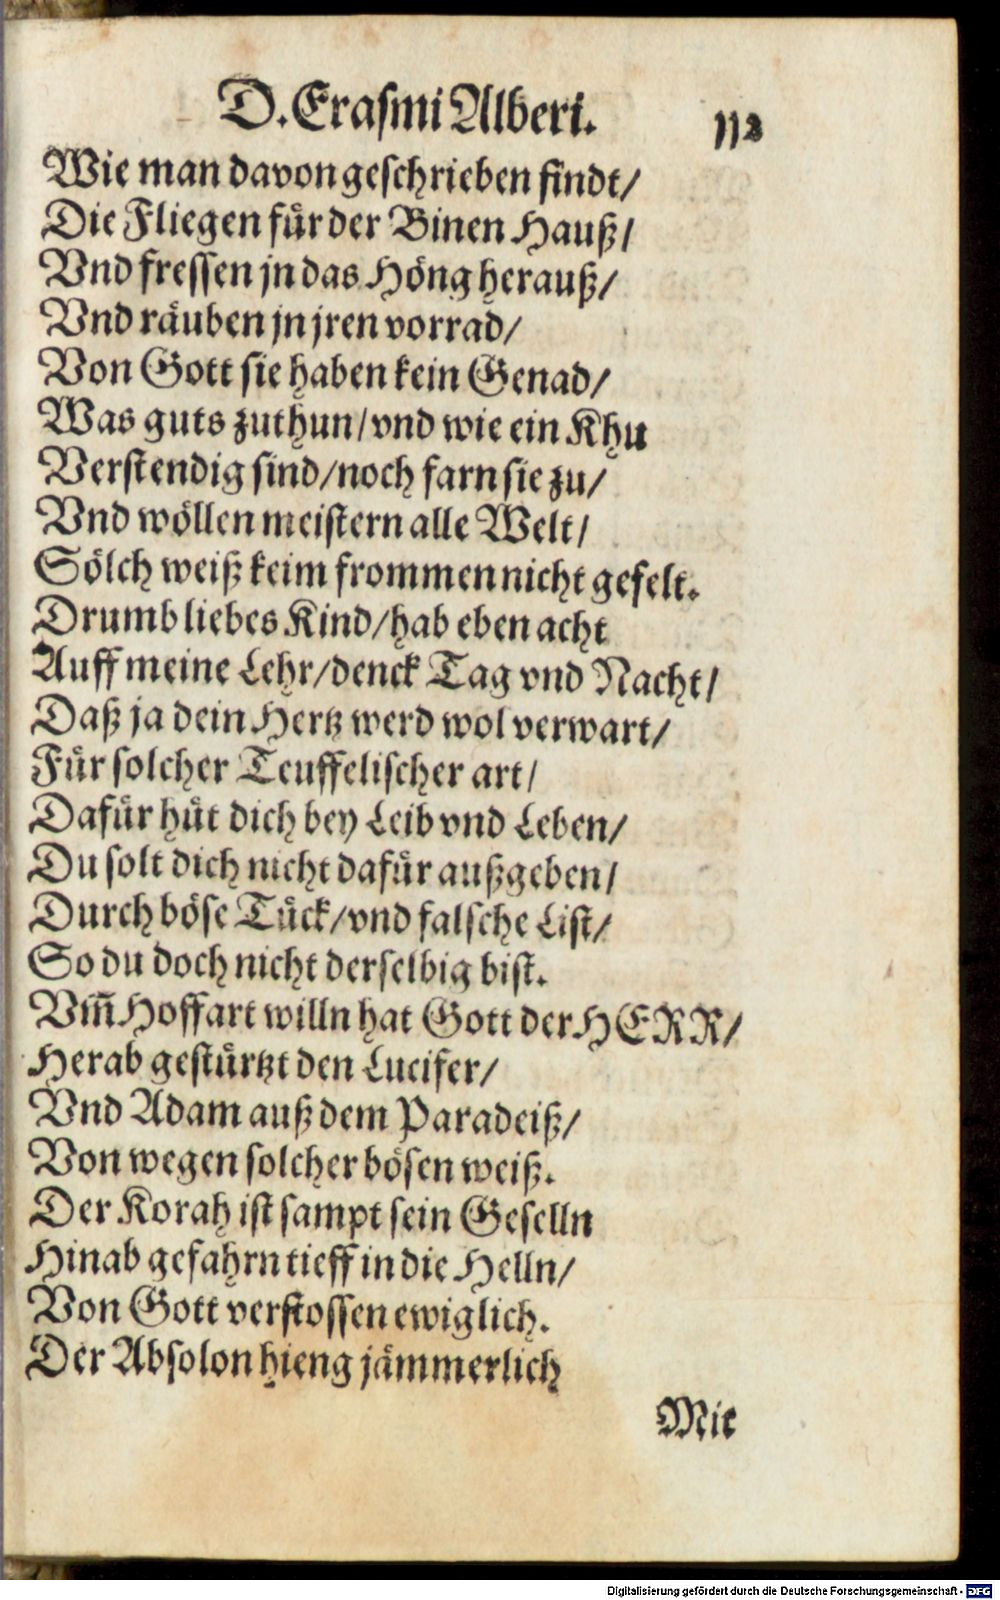 D. Erasmi Alberi. 112
Wie man davon geschrieben findt/
Die Fliegen fuͤr der Binen Hauß/
Vnd fressen jn das Hoͤng herauß/
Vnd raͤuben jn jren vorrad/
Von Gott sie haben kein Genad/
Was guts zuthun/vnd wie ein Khu
Verstendig sind/noch farn sie zu/
Vnd woͤllen meistern alle Welt/
Soͤlch weiß keim frommen nicht gefelt.
Drumb liebes Kind/hab eben acht
Auff meine Lehr/denck Tag vnd Nacht/
Daß ja dein Hertz werd wol verwart/
Fuͤr solcher Teuffelischer art/
Dafuͤr huͤt dich bey Leib vnd Leben/
Du solt dich nicht dafuͤr außgeben/
Durch boͤse Tuͤck/vnd falsche List/
So du doch nicht derselbig bist.
Vm̃ Hoffart willn hat Gott der HERR/
Herab gestuͤrtzt den Lucifer/
Vnd Adam auß dem Paradeiß/
Von wegen solcher boͤsen weiß.
Der Korah ist sampt sein Geselln
Hinab gefahrn tieff in die Helln/
Von Gott verstossen ewiglich.
Der Absolon hieng jaͤmmerlich
Mit
Digitalisierung gefördert durch die Deutsche Forschungsgemeinschaft - DFG